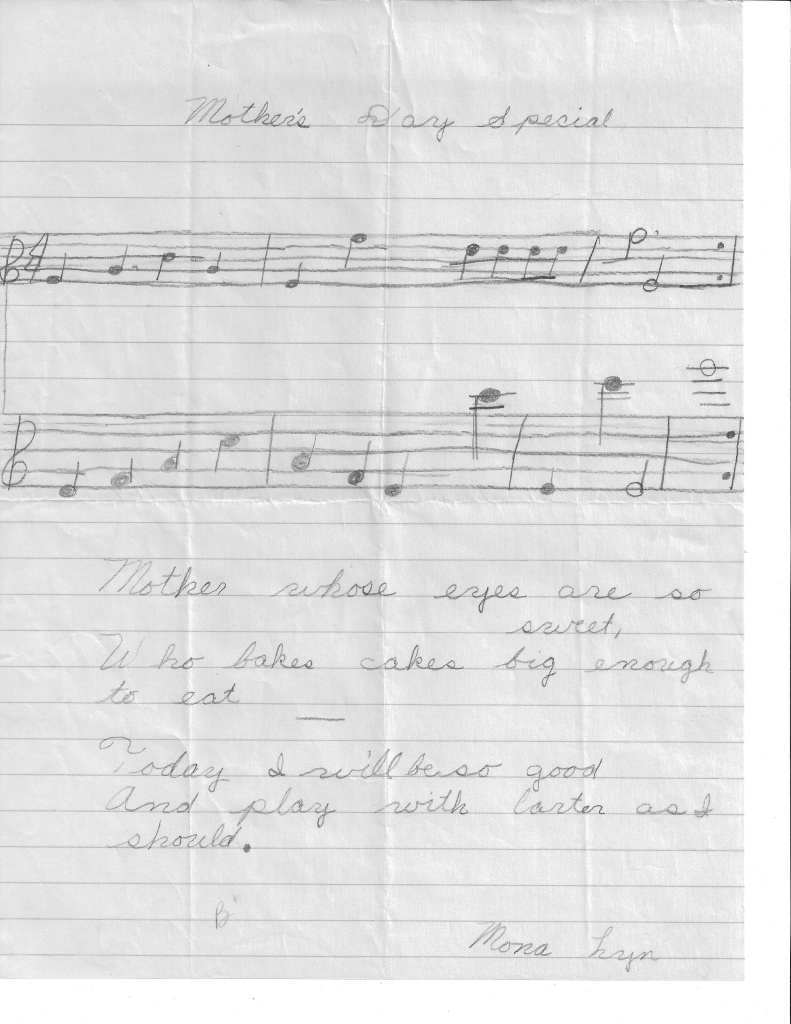 Mother's Day Special
4
Mother whose eyes are so
sweet,
Who bakes cakes big enough
to eat
Today I will be so good
And play with Carter as I
should.
B
Mona Lyn